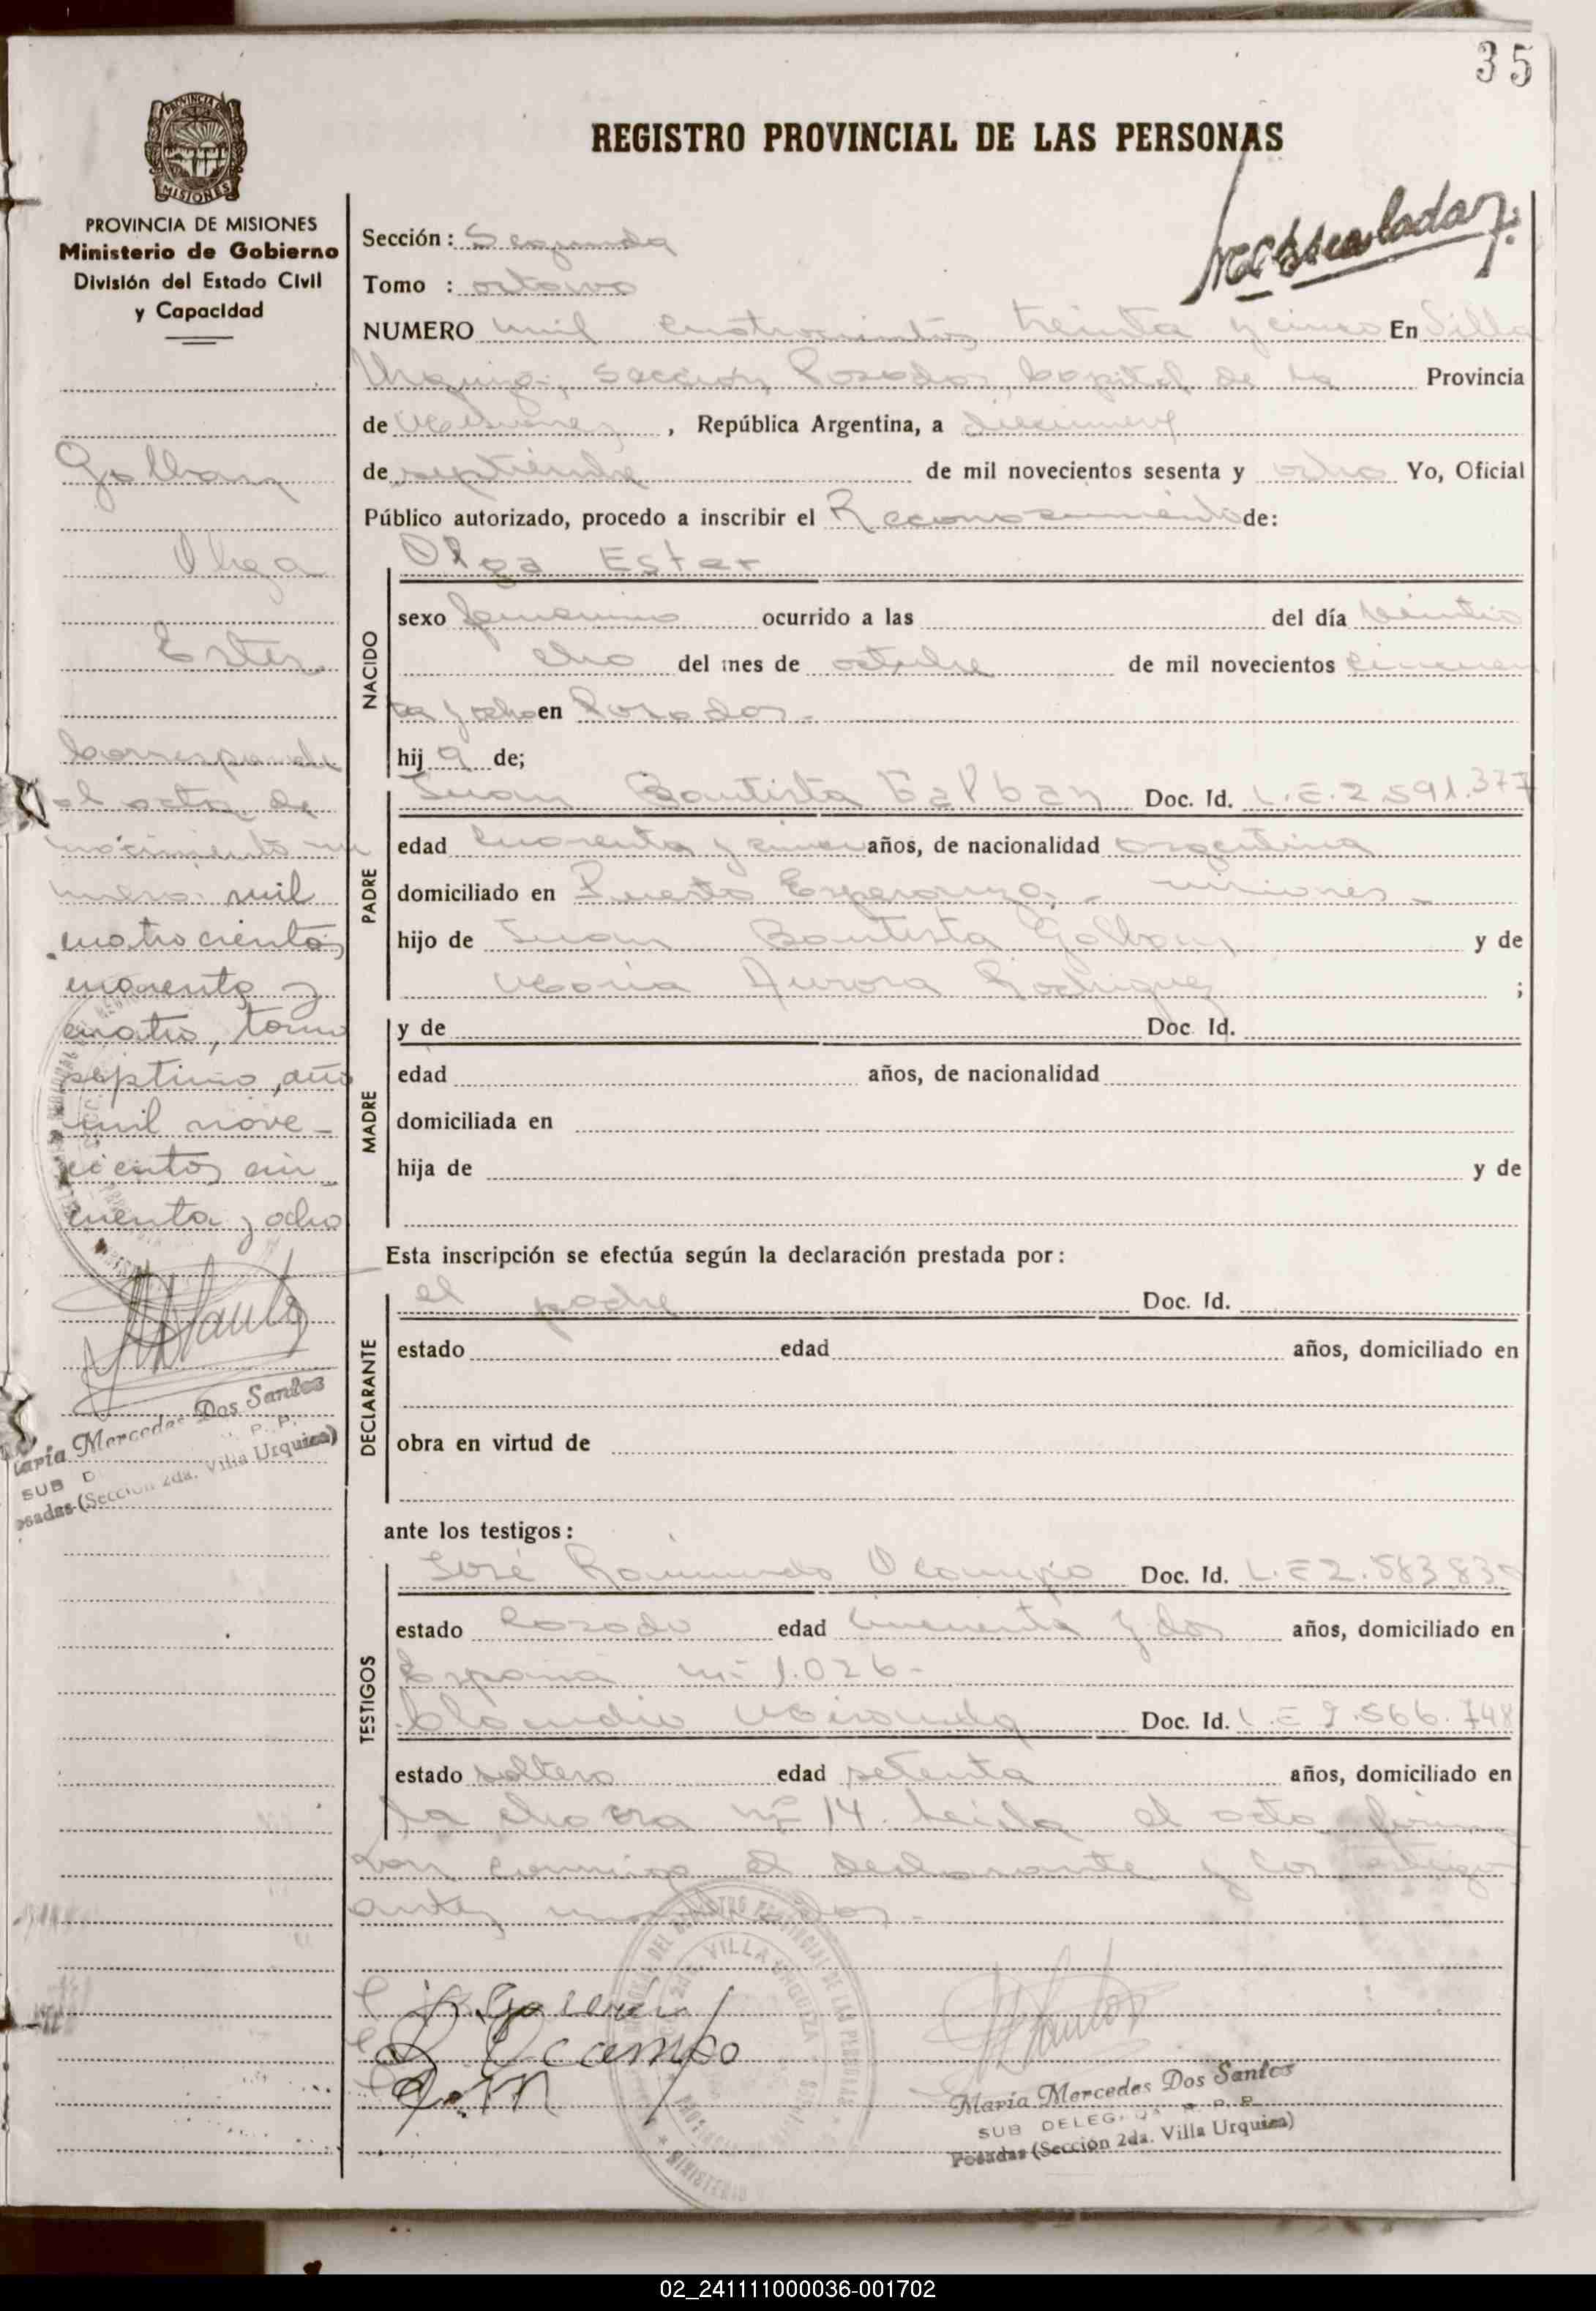 35
REGISTRO PROVINCIAL DE LAS PERSONAS
PROVINCIA DE
MISIONES
PROVINCIA DE MISIONES
Ministerio de Gobierno
División del Estado Civil
y Capacidad
Galban
Olga
Ester
Corresponde
al acta de
nacimiento nu
mero mil
cuatrocientos
cuarenta y
cuatro, tomo
septimo, año
mil nove-
cientos cin
cuenta y ocho
María Mercedes Dos Santos
SUB
Posadas (Sección 2da. Villa Urquiza)
Sección: Segunda
Tomo : octavo
NUMERO mil cuatrocientos treinta y cinco En Villa
Urquiza, Sección, Posadas, Capital de la Provincia
de Misiones, República Argentina, a diecinueve
de septiembre de mil novecientos sesenta y ocho Yo, Oficial
Público autorizado, procedo a inscribir el Reconocimiento de:
NACIDO
Olga Ester
sexo femenino ocurrido a las del día veintio
cho del mes de octubre de mil novecientos cincuen
ta y ocho en Posadas.-
hij a de;
PADRE
Juan Bautista Galban Doc. Id. L.E.2.591.377
edad cuarenta y cinco años, de nacionalidad argentina
domiciliado en Puerto Esperanza, - misiones -
hijo de Juan Bautista Galban y de
María Aurora Rodriguez ;
MADRE
y de Doc. Id.
edad años, de nacionalidad
domiciliada en
hija de y de
Esta inscripción se efectúa según la declaración prestada por:
DECLARANTE
el padre Doc. Id.
estado edad años, domiciliado en
obra en virtud de
ante los testigos:
TESTIGOS
José Raimundo Ocampo Doc. Id. L.E 2.583.83
estado Casado edad cincuenta y dos años, domiciliado en
España nº 1.026-
Claudio Miranda Doc. Id. L.E 2.566.748
estado soltero edad setenta años, domiciliado en
la chacra nº 14. Leida el acta firma
ron conmigo el declarante y los testigos
antes mencionados.-
Ocampo
VILLA URQUIZA
María Mercedes Dos Santos
SUB DELEG. R. P. P.
Posadas (Sección 2da. Villa Urquiza)
02_241111000036-001702